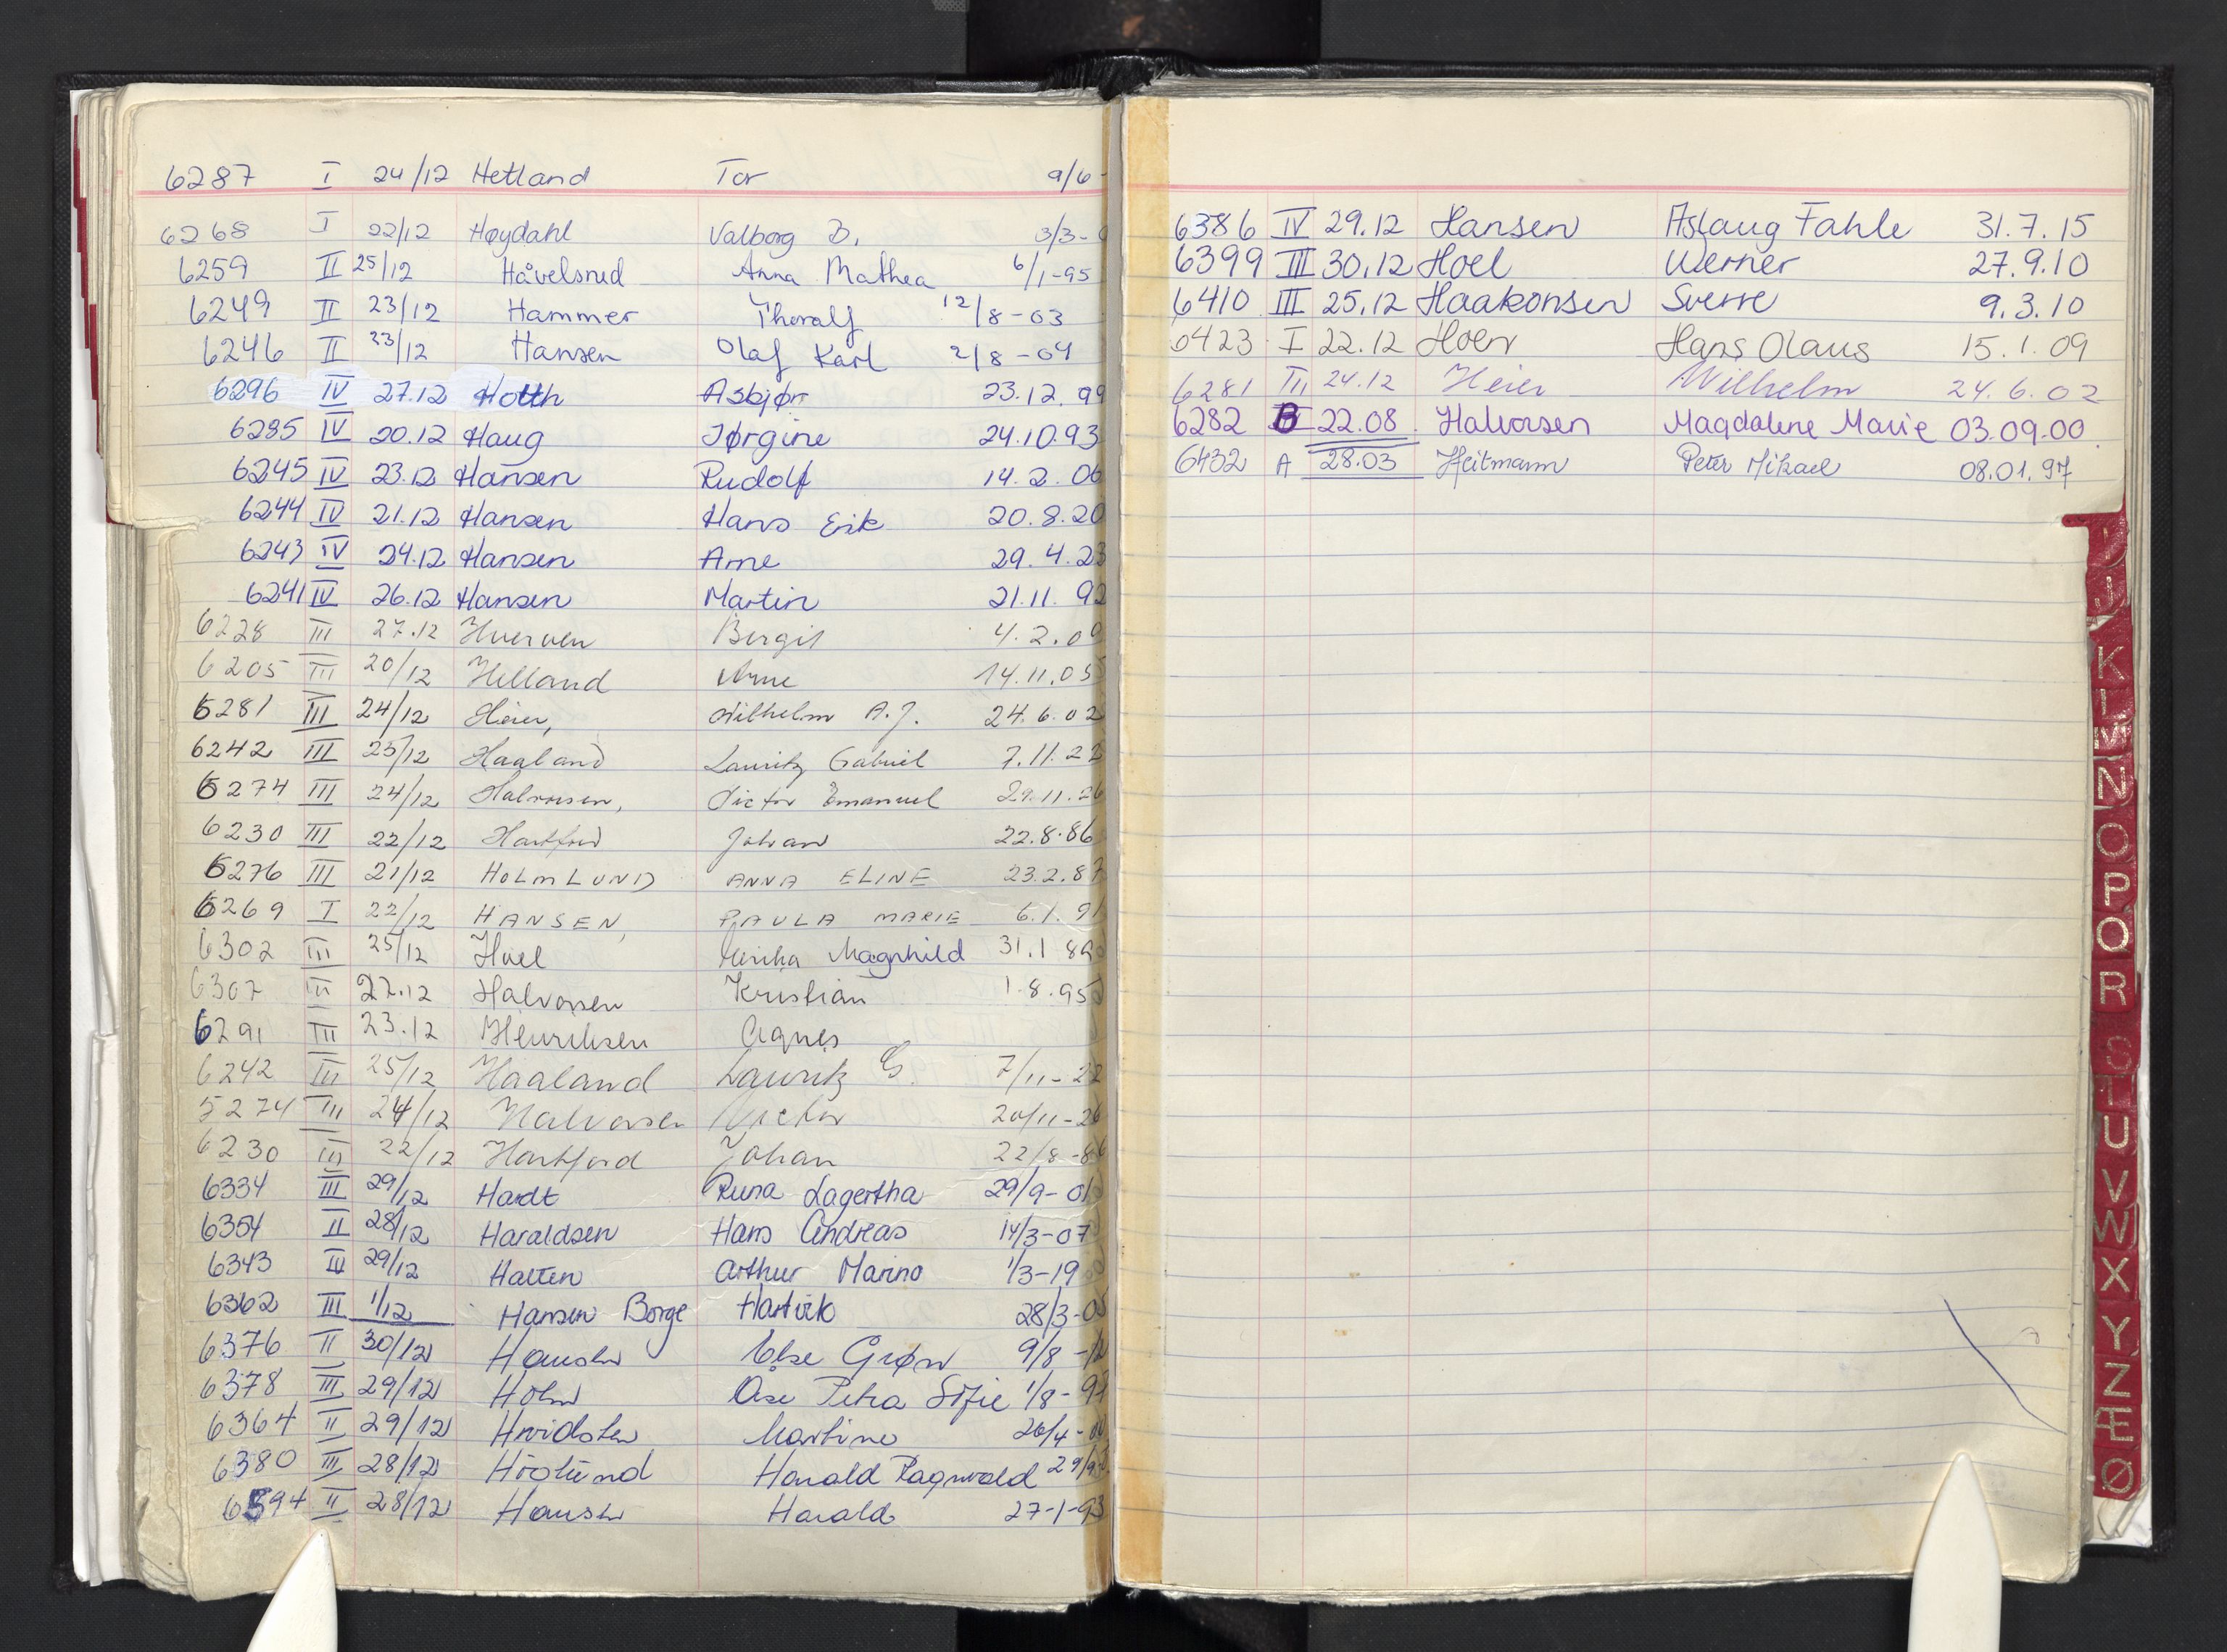 6287 I 24/12 Hetland Tor 9/6-
6268 I 22/12 Høydahl Valborg B. 3/3-
6259 II 25/12 Håvelsrud Anna Mathea 6/1-95
6249 II 23/12 Hammer Thoralf 12/8-03
6246 II 23/12 Hansen Olaf Karl 2/8-04
6296 IV 27.12 Hotth Asbjørn 23.12.99
6285 IV 20.12 Haug Jørgine 24.10.93
6245 IV 23.12 Hansen Rudolf 14.2.06
6244 IV 21.12 Hansen Hans Erik 20.8.20
6243 IV 24.12 Hansen Arne 29.4.23
6241 IV 26.12 Hansen Martin 21.11.92
6228 III 27.12 Hverven Bergit 4.2.09
6205 III 20/12 Helland Arne 14.11.05
6281 III 24/12 Heier, Wilhelm A.J. 24.6.02
6242 III 25/12 Haaland Lauritz Gabriel 7.11.22
6274 III 24/12 Halvorsen, Victor Emanuel 29.11.26
6230 III 22/12 Hartford Johan 22.8.86
6276 III 21/12 HOLMLUND ANNA ELINE 23.2.87
6269 I 22/12 HANSEN, PAULA MARIE 6.1.91
6302 III 25/12 Hoel Magnhild 31.1
6307 III 27.12 Halvorsen Kristian 1.8.95
6291 III 23.12 Henriksen Agnes
6242 III 25/12 Haaland Lauritz G. 7/11-22
5274 III 24/12 Halvorsen Victor 20/11-26
6230 III 22/12 Hartford Johan 22/8-86
6334 III 29/12 Hardt Runa Lagertha 29/9-01
6354 II 28/12 Haraldsen Hans Andreas 14/3-07
6343 IV 29/12 Halten Arthur Marino 1/3-19
6362 III 1/12 Hansen Borge Hartvik 28/3-05
6376 II 30/12 Hansen Else Grøn 9/8-12
6378 III 29/12 Holm Åse Petra Sofie 1/8-97
6364 II 29/12 Hvidsten Martine 26/4-
6380 III 28/12 Höglund Harald Ragnvald 29/9
6394 II 28/12 Hansen Harald 27-1-93
6386 IV 29.12 Hansen Aslaug Fahle 31.7.15
6399 III 30.12 Hoel Werner 27.9.10
6410 III 25.12 Haakonsen Sverre 9.3.10
6423 I 22.12 Hoen Hans Olaus 15.1.09
6281 III 24.12 Heier Wilhelm 24.6.02
6282 B 22.08 Halvorsen Magdalene Marie 03.09.00
6432 A 28.03 Heitmann Peter Mikael 08.01.97
I
J
K
L
M
N
O
P
Q
R
S
T
U
V
W
X
Y
Z
Æ
Ø